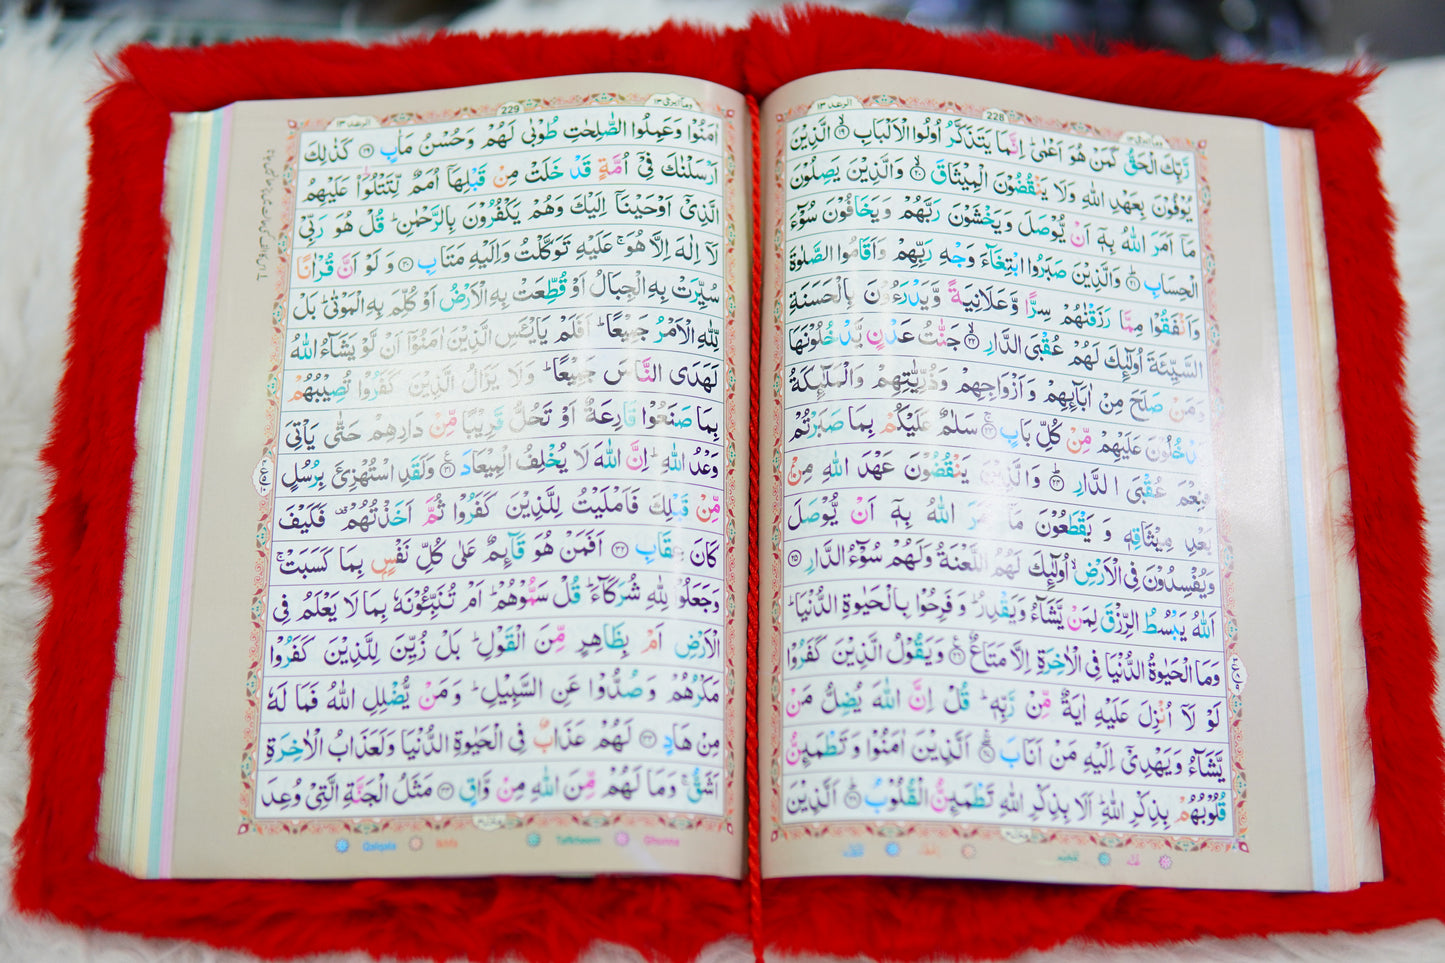 الرعد ١٣ 228 وما ابرئ ١٣
رَبِّكَ الْحَقُّ كَمَنْ هُوَ اَعْمٰىؕ اِنَّمَا يَتَذَكَّرُ اُولُوا الْاَلْبَابِۙ ۱۹ الَّذِيْنَ
يُوْفُوْنَ بِعَهْدِ اللّٰهِ وَلَا يَنْقُضُوْنَ الْمِيْثَاقَۙ ۲۰ وَالَّذِيْنَ يَصِلُوْنَ
مَاۤ اَمَرَ اللّٰهُ بِهٖۤ اَنْ يُّوْصَلَ وَيَخْشَوْنَ رَبَّهُمْ وَيَخَافُوْنَ سُوْٓءَ
الْحِسَابِؕ ۲۱ وَالَّذِيْنَ صَبَرُوا ابْتِغَآءَ وَجْهِ رَبِّهِمْ وَاَقَامُوا الصَّلٰوةَ
وَاَنْفَقُوْا مِمَّا رَزَقْنٰهُمْ سِرًّا وَّعَلَانِيَةً وَّيَدْرَءُوْنَ بِالْحَسَنَةِ
السَّيِّئَةَ اُولٰٓئِكَ لَهُمْ عُقْبَى الدَّارِۙ ۲۲ جَنّٰتُ عَدْنٍ يَّدْخُلُوْنَهَا
وَمَنْ صَلَحَ مِنْ اٰبَآئِهِمْ وَاَزْوَاجِهِمْ وَذُرِّيّٰتِهِمْ وَالْمَلٰٓئِكَةُ
يَدْخُلُوْنَ عَلَيْهِمْ مِّنْ كُلِّ بَابٍۚ ۲۳ سَلٰمٌ عَلَيْكُمْ بِمَا صَبَرْتُمْ
فَنِعْمَ عُقْبَى الدَّارِؕ ۲۴ وَالَّذِيْنَ يَنْقُضُوْنَ عَهْدَ اللّٰهِ مِنْۢ
بَعْدِ مِيْثَاقِهٖ وَيَقْطَعُوْنَ مَاۤ اَمَرَ اللّٰهُ بِهٖۤ اَنْ يُّوْصَلَ
وَيُفْسِدُوْنَ فِى الْاَرْضِۙ اُولٰٓئِكَ لَهُمُ اللَّعْنَةُ وَلَهُمْ سُوْٓءُ الدَّارِ ۲۵
اَللّٰهُ يَبْسُطُ الرِّزْقَ لِمَنْ يَّشَآءُ وَيَقْدِرُؕ وَفَرِحُوْا بِالْحَيٰوةِ الدُّنْيَاؕ
وَمَا الْحَيٰوةُ الدُّنْيَا فِى الْاٰخِرَةِ اِلَّا مَتَاعٌ ۲۶ وَيَقُوْلُ الَّذِيْنَ كَفَرُوْا
لَوْ لَاۤ اُنْزِلَ عَلَيْهِ اٰيَةٌ مِّنْ رَّبِّهٖؕ قُلْ اِنَّ اللّٰهَ يُضِلُّ مَنْ
يَّشَآءُ وَيَهْدِىْۤ اِلَيْهِ مَنْ اَنَابَ ۲۷ اَلَّذِيْنَ اٰمَنُوْا وَتَطْمَئِنُّ
قُلُوْبُهُمْ بِذِكْرِ اللّٰهِؕ اَلَا بِذِكْرِ اللّٰهِ تَطْمَئِنُّ الْقُلُوْبُؕ ۲۸ اَلَّذِيْنَ
الرعد ١٣ 229 وما ابرئ ١٣
اٰمَنُوْا وَعَمِلُوا الصّٰلِحٰتِ طُوْبٰى لَهُمْ وَحُسْنُ مَاٰبٍ ۲۹ كَذٰلِكَ
اَرْسَلْنٰكَ فِىْۤ اُمَّةٍ قَدْ خَلَتْ مِنْ قَبْلِهَاۤ اُمَمٌ لِّتَتْلُوَا۟ عَلَيْهِمُ
الَّذِىْۤ اَوْحَيْنَاۤ اِلَيْكَ وَهُمْ يَكْفُرُوْنَ بِالرَّحْمٰنِؕ قُلْ هُوَ رَبِّىْ
لَاۤ اِلٰهَ اِلَّا هُوَۚ عَلَيْهِ تَوَكَّلْتُ وَاِلَيْهِ مَتَابِ ۳۰ وَلَوْ اَنَّ قُرْاٰنًا
سُيِّرَتْ بِهِ الْجِبَالُ اَوْ قُطِّعَتْ بِهِ الْاَرْضُ اَوْ كُلِّمَ بِهِ الْمَوْتٰىؕ بَلْ
لِّلّٰهِ الْاَمْرُ جَمِيْعًاؕ اَفَلَمْ يَايْـَٔسِ الَّذِيْنَ اٰمَنُوْۤا اَنْ لَّوْ يَشَآءُ اللّٰهُ
لَهَدَى النَّاسَ جَمِيْعًاؕ وَلَا يَزَالُ الَّذِيْنَ كَفَرُوْا تُصِيْبُهُمْ
بِمَا صَنَعُوْا قَارِعَةٌ اَوْ تَحُلُّ قَرِيْبًا مِّنْ دَارِهِمْ حَتّٰى يَاْتِىَ
وَعْدُ اللّٰهِؕ اِنَّ اللّٰهَ لَا يُخْلِفُ الْمِيْعَادَ ۳۱ وَلَقَدِ اسْتُهْزِئَ بِرُسُلٍ
مِّنْ قَبْلِكَ فَاَمْلَيْتُ لِلَّذِيْنَ كَفَرُوْا ثُمَّ اَخَذْتُهُمْ فَكَيْفَ
كَانَ عِقَابِ ۳۲ اَفَمَنْ هُوَ قَآئِمٌ عَلٰى كُلِّ نَفْسٍۢ بِمَا كَسَبَتْۚ
وَجَعَلُوْا لِلّٰهِ شُرَكَآءَؕ قُلْ سَمُّوْهُمْؕ اَمْ تُنَبِّـُٔوْنَهٗ بِمَا لَا يَعْلَمُ فِى
الْاَرْضِ اَمْ بِظَاهِرٍ مِّنَ الْقَوْلِؕ بَلْ زُيِّنَ لِلَّذِيْنَ كَفَرُوْا
مَكْرُهُمْ وَصُدُّوْا عَنِ السَّبِيْلِؕ وَمَنْ يُّضْلِلِ اللّٰهُ فَمَا لَهٗ
مِنْ هَادٍ ۳۳ لَهُمْ عَذَابٌ فِى الْحَيٰوةِ الدُّنْيَا وَلَعَذَابُ الْاٰخِرَةِ
اَشَقُّۚ وَمَا لَهُمْ مِّنَ اللّٰهِ مِنْ وَّاقٍ ۳۴ مَثَلُ الْجَنَّةِ الَّتِىْ وُعِدَ
Qalqala Ikhfa Tafkheem Ghunna